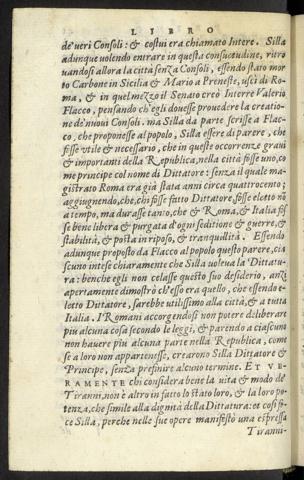 LIBRO
de' veri Consoli: & costui era chiamato Intere. Silla
adunque volendo entrare in questa consuetudine, ritro
vandosi allora la città senza Consoli, essendo stato mor
to Carbone in Sicilia & Mario a Preneste, uscì di Ro
ma, & in quel mezzo il Senato creò Interre Valerio
Flacco, pensando ch'egli dovesse procedere la creatio
ne de' nuovi Consoli. ma Silla da parte scrisse a Flac
co, che proponesse al popolo, Silla essere di parere, che
fosse utile & necessario, che in queste occorrenze gravi
& importanti della Republica, nella città fosse uno, co
me principe col nome di Dittatore: senza il quale ma
gistrato Roma era già stata anni circa quattrocento;
aggiugnendo, che, chi fosse fatto Dittatore, fosse eletto nō
a tempo, ma durasse tanto, che & Roma, & Italia fos
se bene libera & purgata d'ogni seditione & guerre, &
stabilità, & posta in riposo, & tranquilità. Essendo
adunque proposto da Flacco al popolo questo parere, cia
scuno intese chiaramente che Silla voleva la Dittatu
ra: benche egli non celasse questo suo desiderio, anzi
apertamente dimostrò ch'esso era quello, che essendo e-
letto Dittatore, sarebbe utilissimo alla città, & a tutta
Italia. I Romani accorgendosi non potere deliberare
piu alcuna cosa secondo le leggi, & parendo a ciascuno
non havere piu alcuna parte nella Republica, come
se a loro non appartenesse, crearono Silla Dittatore &
Principe, senza prefinire alcuno termine. ET VE-
RAMENTE chi considera bene la vita & modo de'
Tiranni, non è altro in fatto lo stato loro, & la loro po-
tenza, che simile alla dignità della Dittatura: et cosi fe
ce Silla, perche nelle sue opere manifestò una espressa
Tiranni-